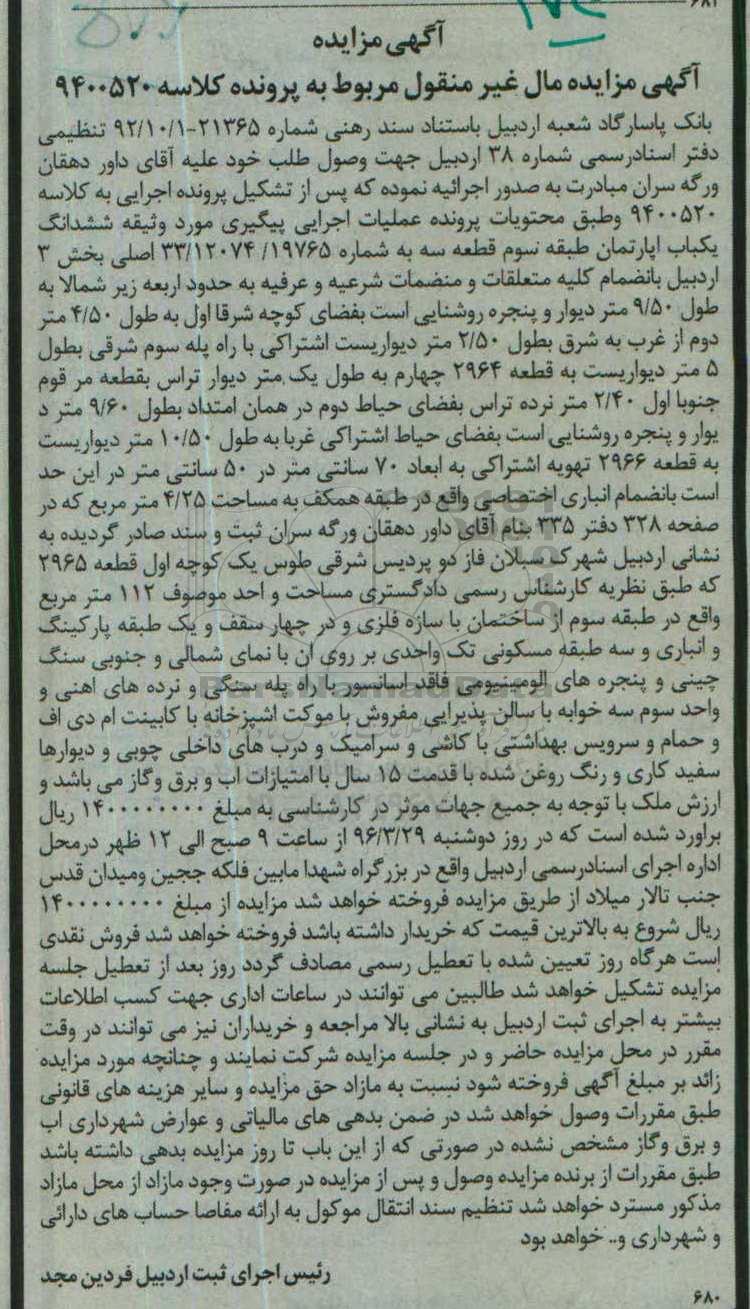 ۶۸۱
آگهی مزایده
آگهی مزایده مال غیر منقول مربوط به پرونده کلاسه ۹۴۰۰۵۲۰
بانک پاسارگاد شعبه اردبیل باستناد سند رهنی شماره ۲۱۳۶۵-۹۲/۱۰/۱ تنظیمی
دفتر اسنادرسمی شماره ۳۸ اردبیل جهت وصول طلب خود علیه آقای داور دهقان
ورگه سران مبادرت به صدور اجرائیه نموده که پس از تشکیل پرونده اجرایی به کلاسه
۹۴۰۰۵۲۰ وطبق محتویات پرونده عملیات اجرایی پیگیری مورد وثیقه ششدانگ
یکباب اپارتمان طبقه سوم قطعه سه به شماره ۱۹۷۶۵/ ۳۳/۱۲۰۷۴ اصلی بخش ۳
اردبیل بانضمام کلیه متعلقات و منضمات شرعیه و عرفیه به حدود اربعه زیر شمالا به
طول ۹/۵۰ متر دیوار و پنجره روشنایی است بفضای کوچه شرقا اول به طول ۴/۵۰ متر
دوم از غرب به شرق بطول ۲/۵۰ متر دیواریست اشتراکی با راه پله سوم شرقی بطول
۵ متر دیواریست به قطعه ۲۹۶۴ چهارم به طول یک متر دیوار تراس بقطعه مر قوم
جنوبا اول ۲/۴۰ متر نرده تراس بفضای حیاط دوم در همان امتداد بطول ۹/۶۰ متر د
یوار و پنجره روشنایی است بفضای حیاط اشتراکی غربا به طول ۱۰/۵۰ متر دیواریست
به قطعه ۲۹۶۶ تهویه اشتراکی به ابعاد ۷۰ سانتی متر در ۵۰ سانتی متر در این حد
است بانضمام انباری اختصاصی واقع در طبقه همکف به مساحت ۴/۲۵ متر مربع که در
صفحه ۳۲۸ دفتر ۳۳۵ بنام آقای داور دهقان ورگه سران ثبت و سند صادر گردیده به
نشانی اردبیل شهرک سبلان فاز دو پردیس شرقی طوس یک کوچه اول قطعه ۲۹۶۵
که طبق نظریه کارشناس رسمی دادگستری مساحت و احد موصوف ۱۱۲ متر مربع
واقع در طبقه سوم از ساختمان با سازه فلزی و در چهار سقف و یک طبقه پارکینگ
و انباری و سه طبقه مسکونی تک واحدی بر روی ان با نمای شمالی و جنوبی سنگ
چینی و پنجره های الومینیومی فاقد اسانسور با راه پله سنگی و نرده های اهنی و
واحد سوم سه خوابه با سالن پذیرایی مفروش با موکت اشپزخانه با کابینت ام دی اف
و حمام و سرویس بهداشتی با کاشی و سرامیک و درب های داخلی چوبی و دیوارها
سفید کاری و رنگ روغن شده با قدمت ۱۵ سال با امتیازات اب و برق وگاز می باشد و
ارزش ملک با توجه به جمیع جهات موثر در کارشناسی به مبلغ ۱۴۰۰۰۰۰۰۰۰ ریال
براورد شده است که در روز دوشنبه ۹۶/۳/۲۹ از ساعت ۹ صبح الی ۱۲ ظهر درمحل
اداره اجرای اسنادرسمی اردبیل واقع در بزرگراه شهدا مابین فلکه ججین ومیدان قدس
جنب تالار میلاد از طریق مزایده فروخته خواهد شد مزایده از مبلغ ۱۴۰۰۰۰۰۰۰۰
ریال شروع به بالاترین قیمت که خریدار داشته باشد فروخته خواهد شد فروش نقدی
است هرگاه روز تعیین شده با تعطیل رسمی مصادف گردد روز بعد از تعطیل جلسه
مزایده تشکیل خواهد شد طالبین می توانند در ساعات اداری جهت کسب اطلاعات
بیشتر به اجرای ثبت اردبیل به نشانی بالا مراجعه و خریداران نیز می توانند در وقت
مقرر در محل مزایده حاضر و در جلسه مزایده شرکت نمایند و چنانچه مورد مزایده
زائد بر مبلغ آگهی فروخته شود نسبت به مازاد حق مزایده و سایر هزینه های قانونی
طبق مقررات وصول خواهد شد در ضمن بدهی های مالیاتی و عوارض شهرداری اب
و برق وگاز مشخص نشده در صورتی که از این باب تا روز مزایده بدهی داشته باشد
طبق مقررات از برنده مزایده وصول و پس از مزایده در صورت وجود مازاد از محل مازاد
مذکور مسترد خواهد شد تنظیم سند انتقال موکول به ارائه مفاصا حساب های دارائی
و شهرداری و.. خواهد بود
رئیس اجرای ثبت اردبیل فردین مجد
۶۸۰